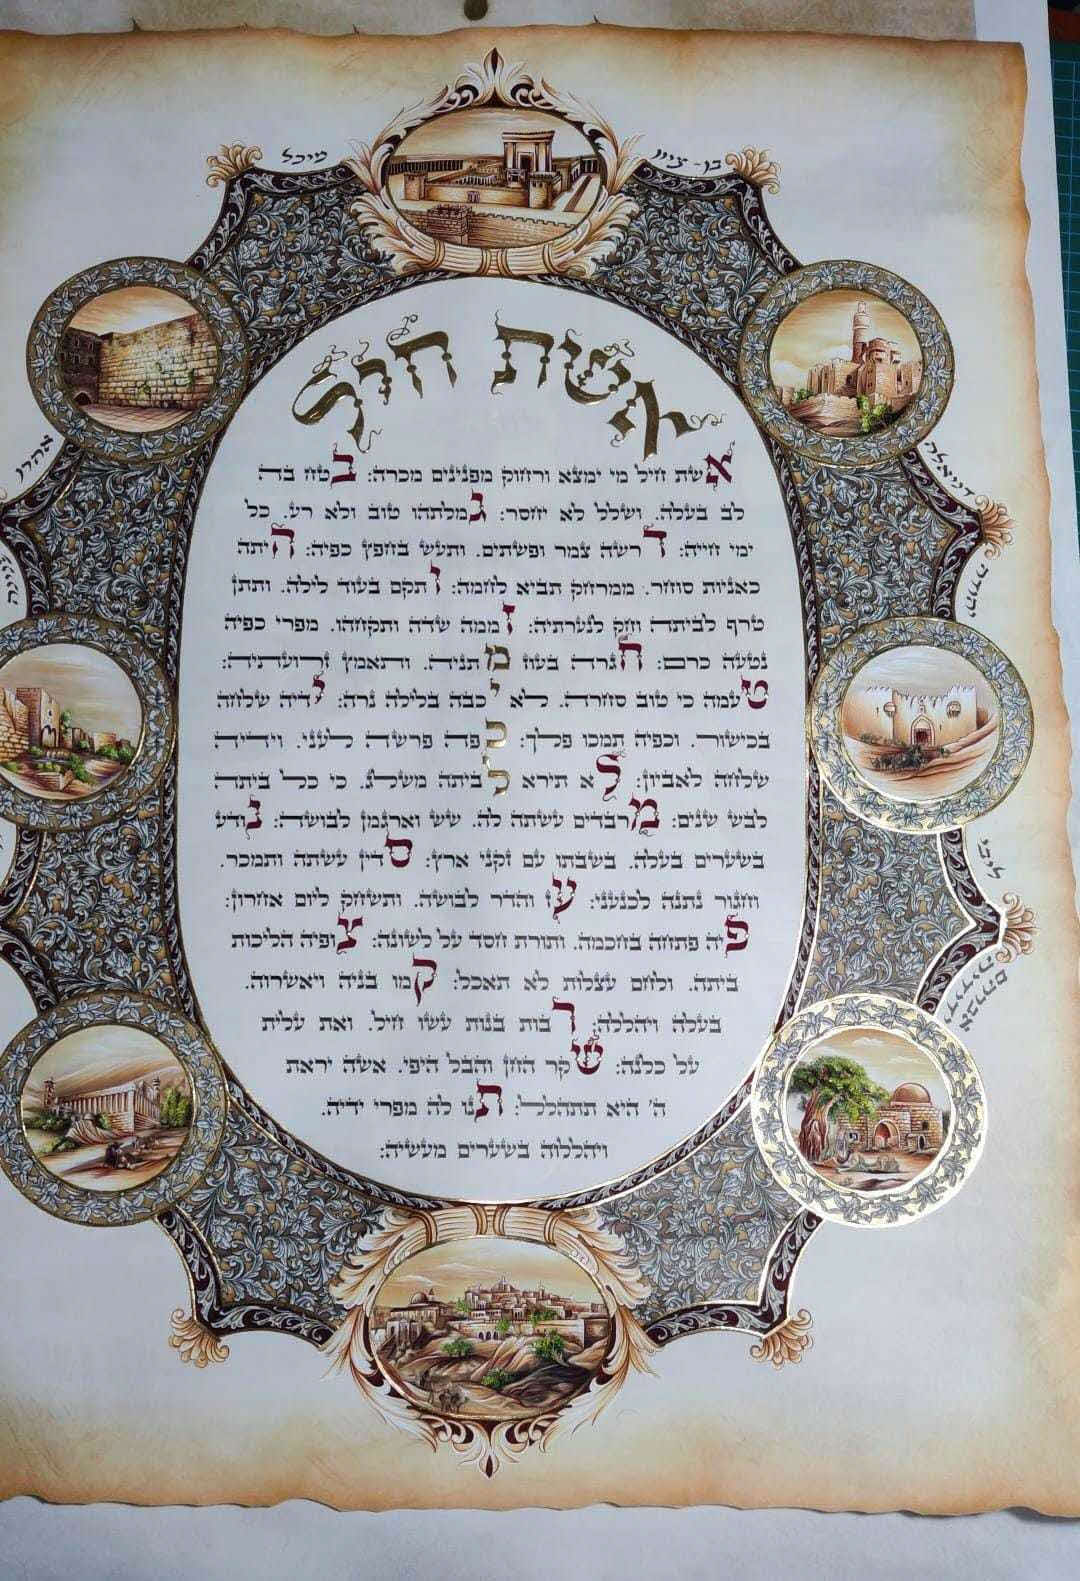 בן-ציון
מיכל
אשת חיל
אשת חיל מי ימצא ורחוק מפנינים מכרה: בטח בה
לב בעלה. ושלל לא יחסר: גמלתהו טוב ולא רע. כל
ימי חייה: דרשה צמר ופשתים. ותעש בחפץ כפיה: היתה
כאניות סוחר. ממרחק תביא לחמה: ותקם בעוד לילה. ותתן
טרף לביתה וחק לנערתיה: זממה שדה ותקחהו. מפרי כפיה
נטעה כרם: חגרה בעוז מתניה. ותאמץ זרועותיה:
טעמה כי טוב סחרה. לא יכבה בלילה נרה: ידיה שלחה
בכישור. וכפיה תמכו פלך: כפה פרשה לעני. וידיה
שלחה לאביון: לא תירא לביתה משלג. כי כל ביתה
לבש שנים: מרבדים עשתה לה. שש וארגמן לבושה: נודע
בשערים בעלה. בשבתו עם זקני ארץ: סדין עשתה ותמכר.
וחגור נתנה לכנעני: עז והדר לבושה. ותשחק ליום אחרון:
פיה פתחה בחכמה. ותורת חסד על לשונה: צופיה הליכות
ביתה. ולחם עצלות לא תאכל: קמו בניה ויאשרוה.
בעלה ויהללה: רבות בנות עשו חיל. ואת עלית
על כלנה: שקר החן והבל היפי. אשה יראת
ה' היא תתהלל: תנו לה מפרי ידיה.
ויהללוה בשערים מעשיה:
דניאלה
יהודה
ליבי
אברהם
אהרן